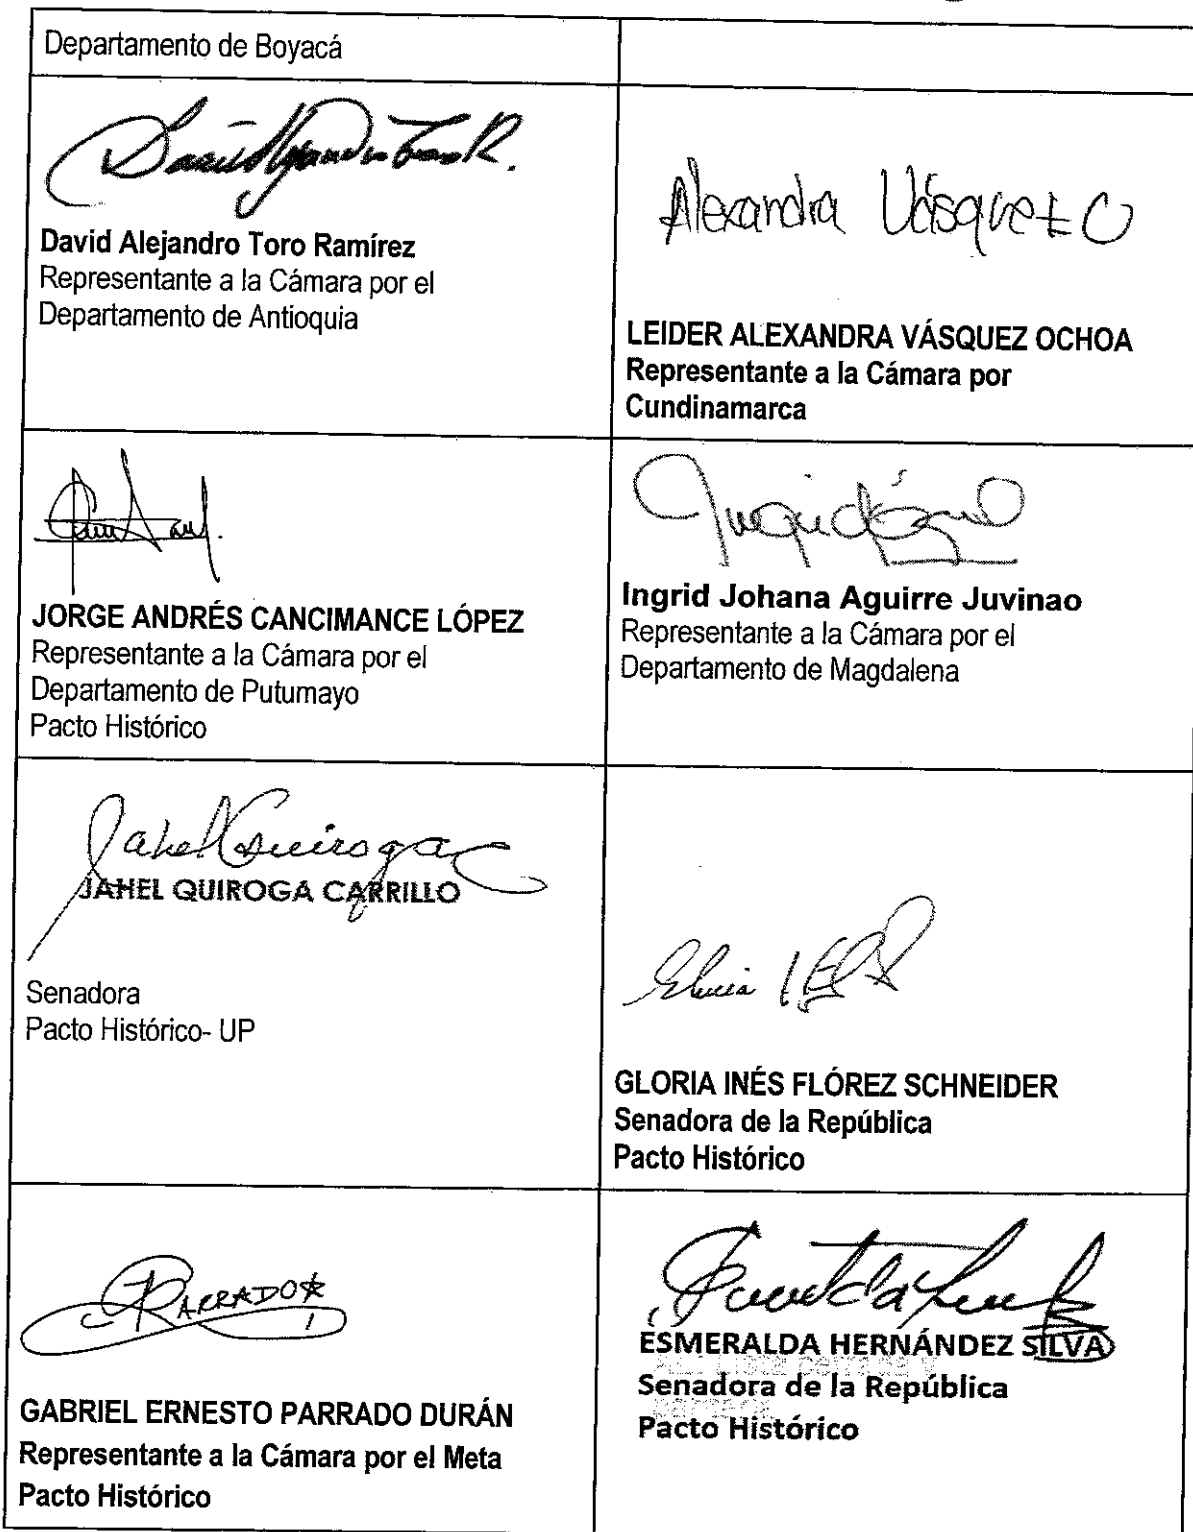 Departamento de Boyacá
David Alejandro Toro R.
David Alejandro Toro Ramírez
Representante a la Cámara por el
Departamento de Antioquia
Alexandra Vásquez O
LEIDER ALEXANDRA VÁSQUEZ OCHOA
Representante a la Cámara por
Cundinamarca
JORGE ANDRÉS CANCIMANCE LÓPEZ
Representante a la Cámara por el
Departamento de Putumayo
Pacto Histórico
Ingrid Johana Aguirre Juvinao
Representante a la Cámara por el
Departamento de Magdalena
Jahel Quiroga C
JAHEL QUIROGA CARRILLO
Senadora
Pacto Histórico- UP
GLORIA INÉS FLÓREZ SCHNEIDER
Senadora de la República
Pacto Histórico
PARRADO
GABRIEL ERNESTO PARRADO DURÁN
Representante a la Cámara por el Meta
Pacto Histórico
ESMERALDA HERNÁNDEZ SILVA
Senadora de la República
Pacto Histórico